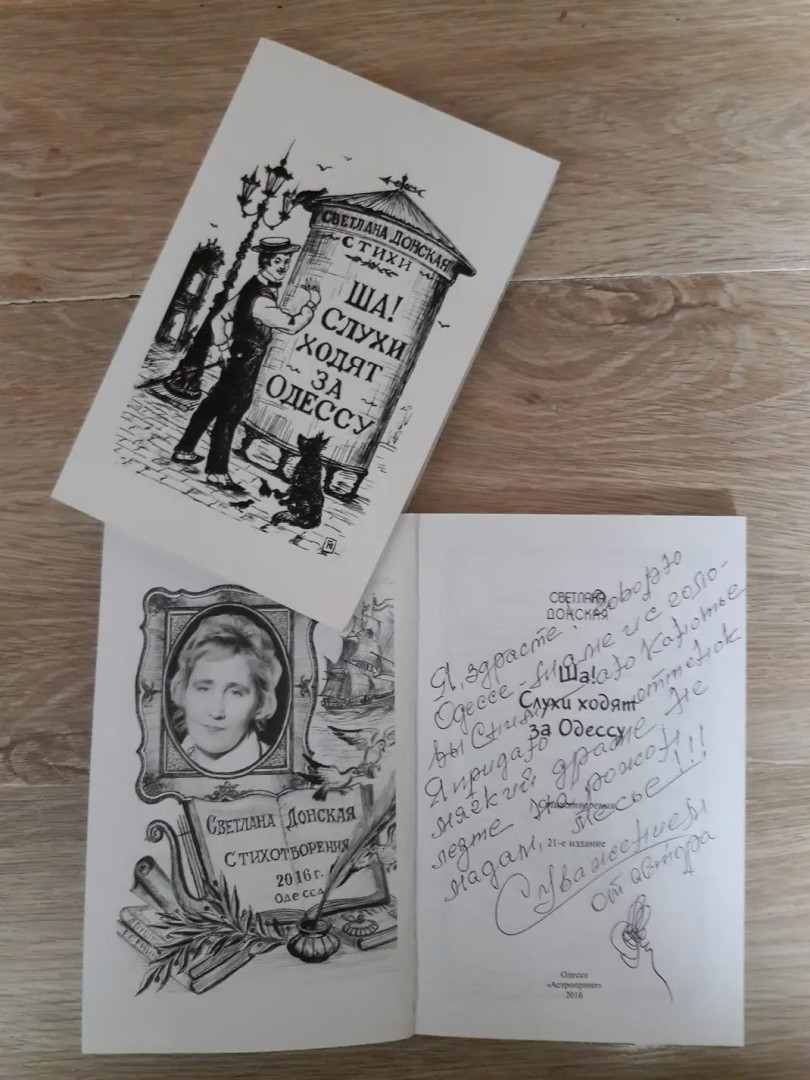 СВЕТЛАНА ДОНСКАЯ
СТИХИ
ША!
СЛУХИ
ХОДЯТ
ЗА
ОДЕССУ
СВЕТЛАНА ДОНСКАЯ
СТИХОТВОРЕНИЯ
2016 г.
Одесса
СВЕТЛАНА
ДОНСКАЯ
Ша!
Слухи ходят
за Одессу
Стихотворения
21-е издание
Одесса
«Астропринт»
2016
Я, здрасте! говорю
Одессе-маме и с голо-
вы снимаю канотье
Я придаю оттенок
мягкий драме не
лезте на рожон
мадам, месье!!!
С уважением
от автора